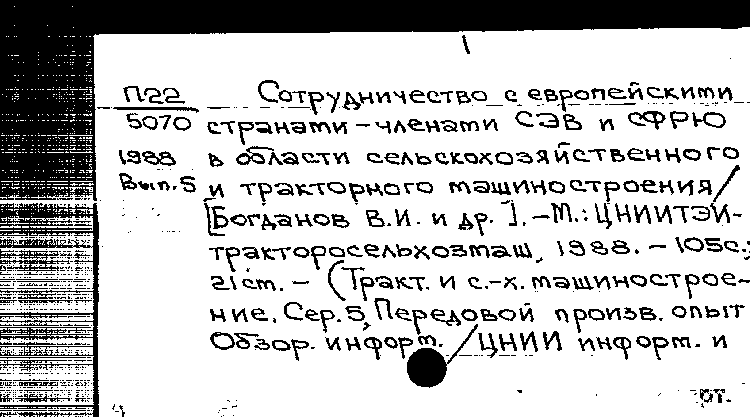 П22 Сотрудничество с европейскими
5070 странами-членами СЭВ и СФРЮ
1988 в области сельскохозяйственного
Вып.5 и тракторного машиностроения/
[Богданов В.И. и др.].-М.: ЦНИИТЭИ-
тракторосельхозмаш, 1988. - 105с.;
21cm. - (Тракт. и с.-х. машинострое-
ние. Сер. 5, Передовой произв. опыт
Обзор. информ. / ЦНИИ информ. и